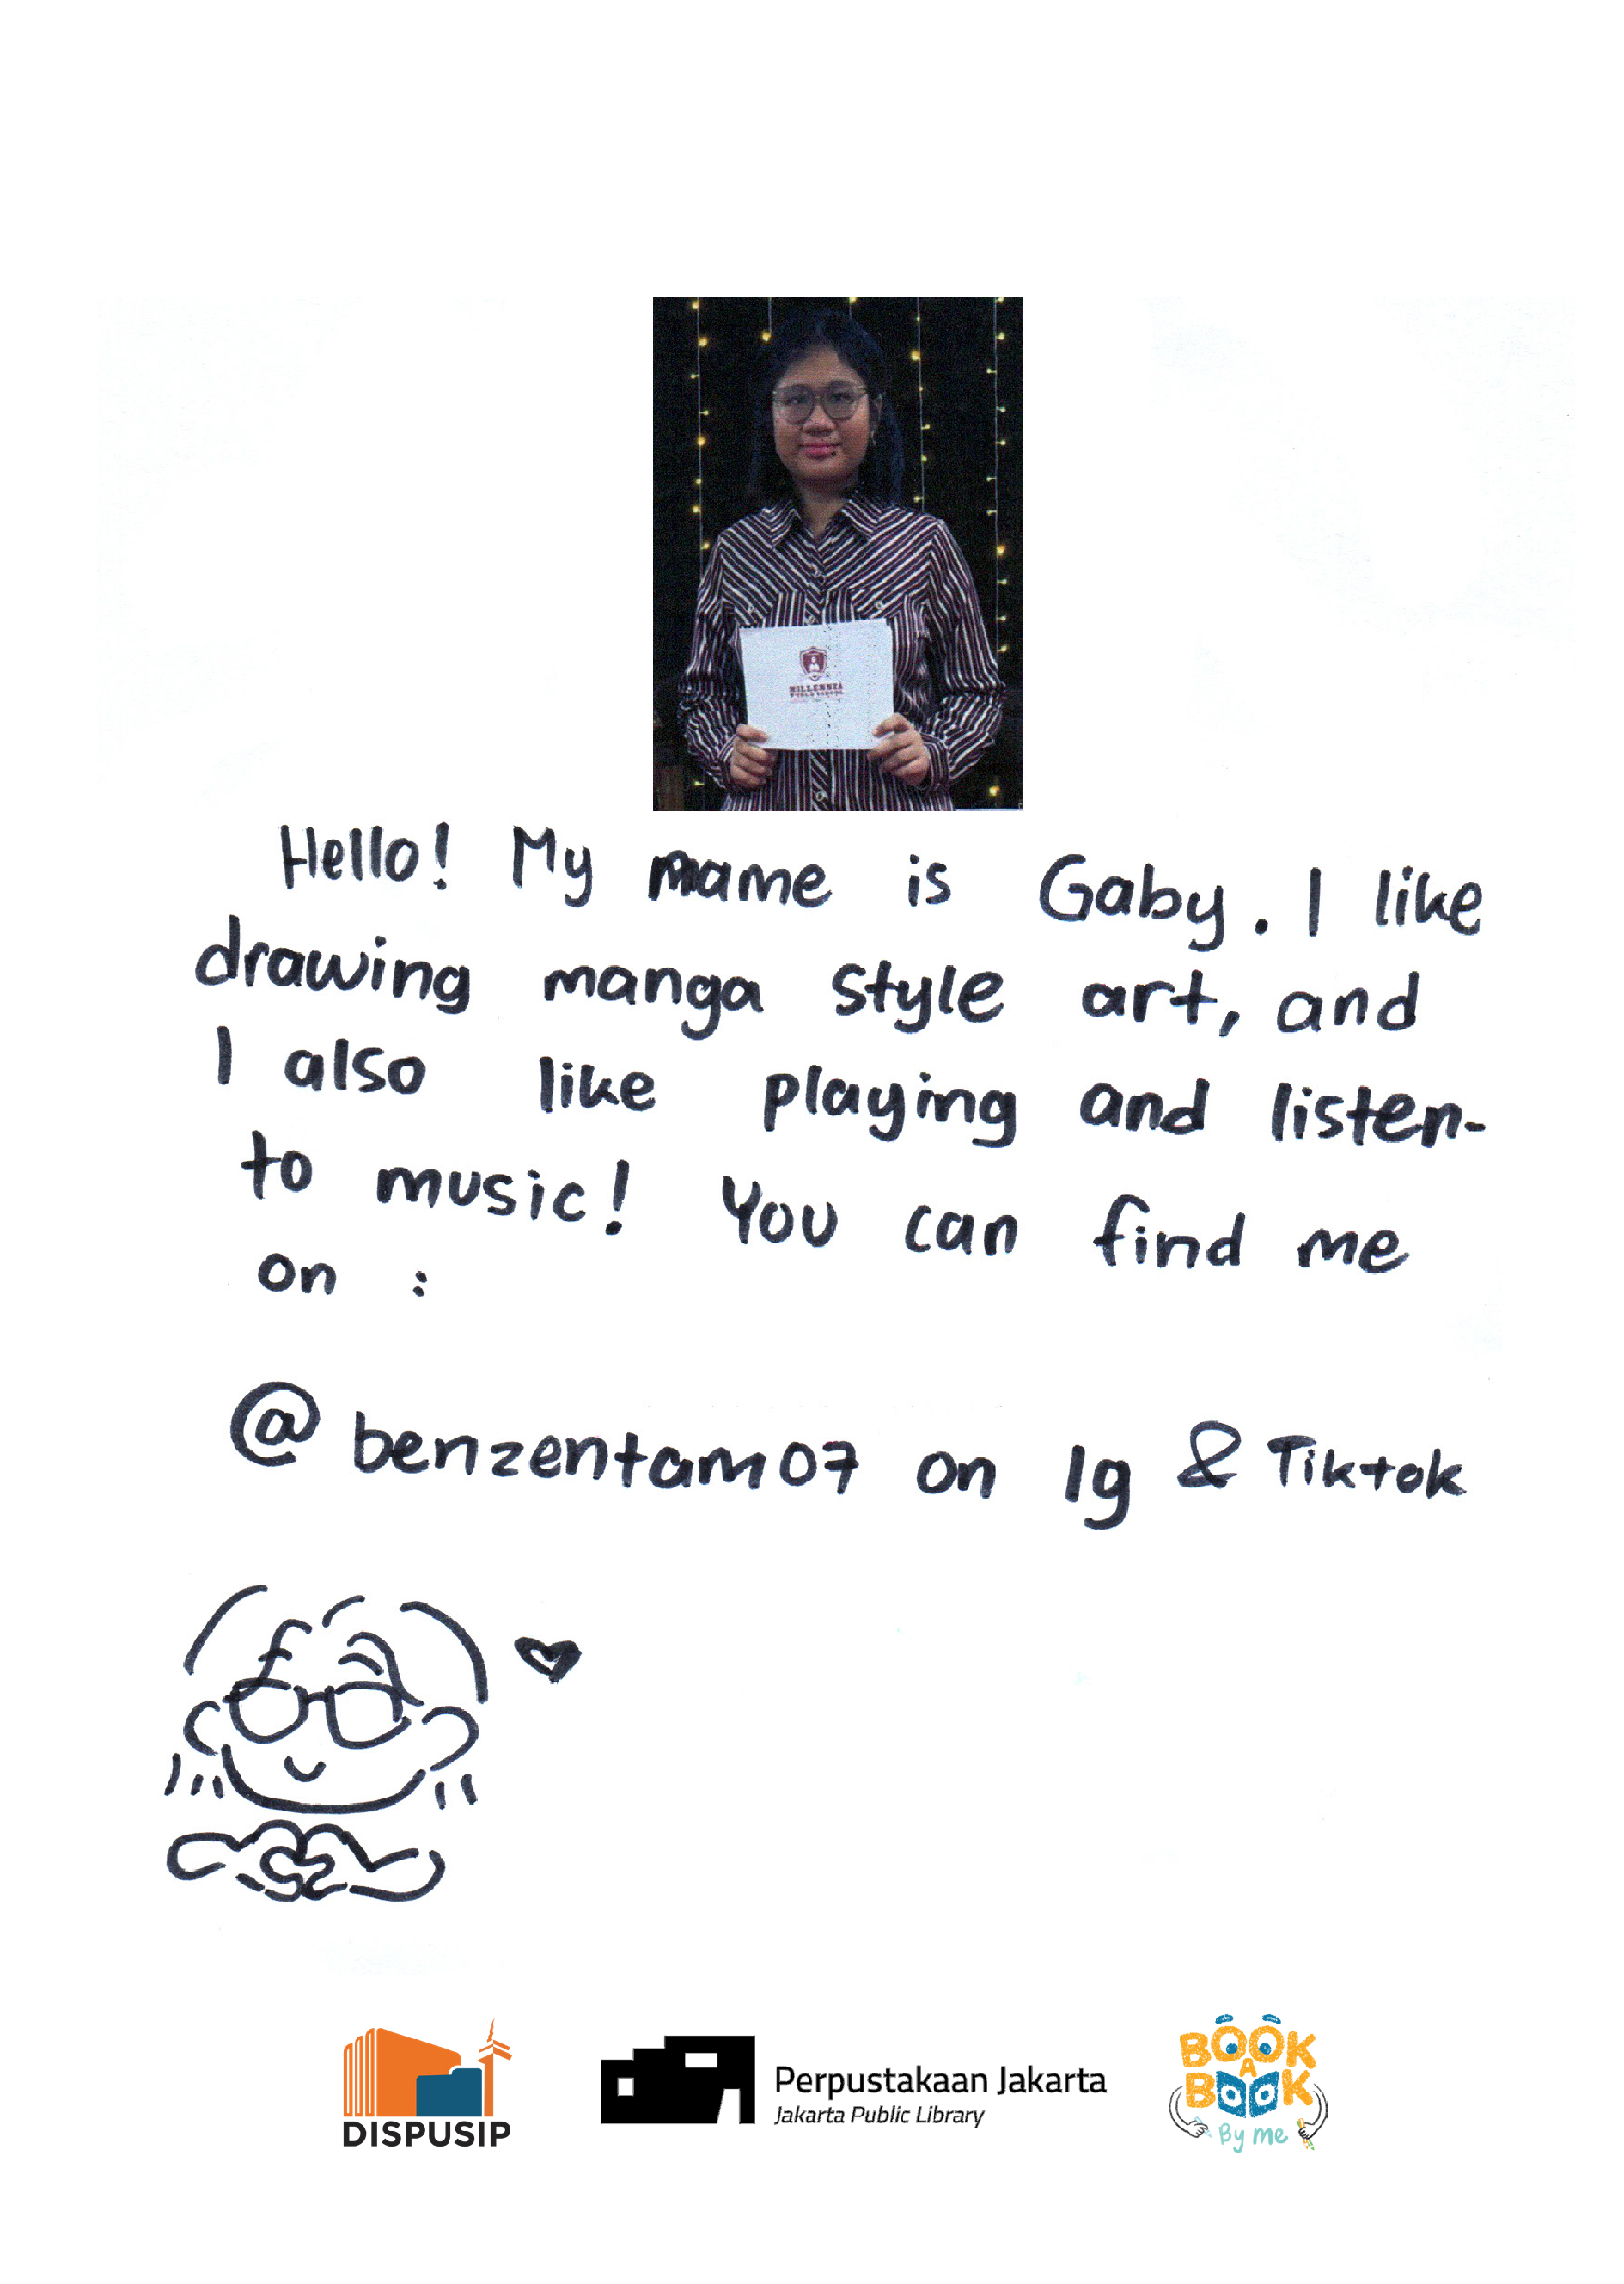 MILLENNIA
WORLD SCHOOL
Hello! My name is Gaby. I like
drawing manga style art, and
I also like playing and listen-
to music! You can find me
on :
@benzentam07 on Ig & Tiktok
DISPUSIP
Perpustakaan Jakarta
Jakarta Public Library
BOOK
A
BOOK
By me